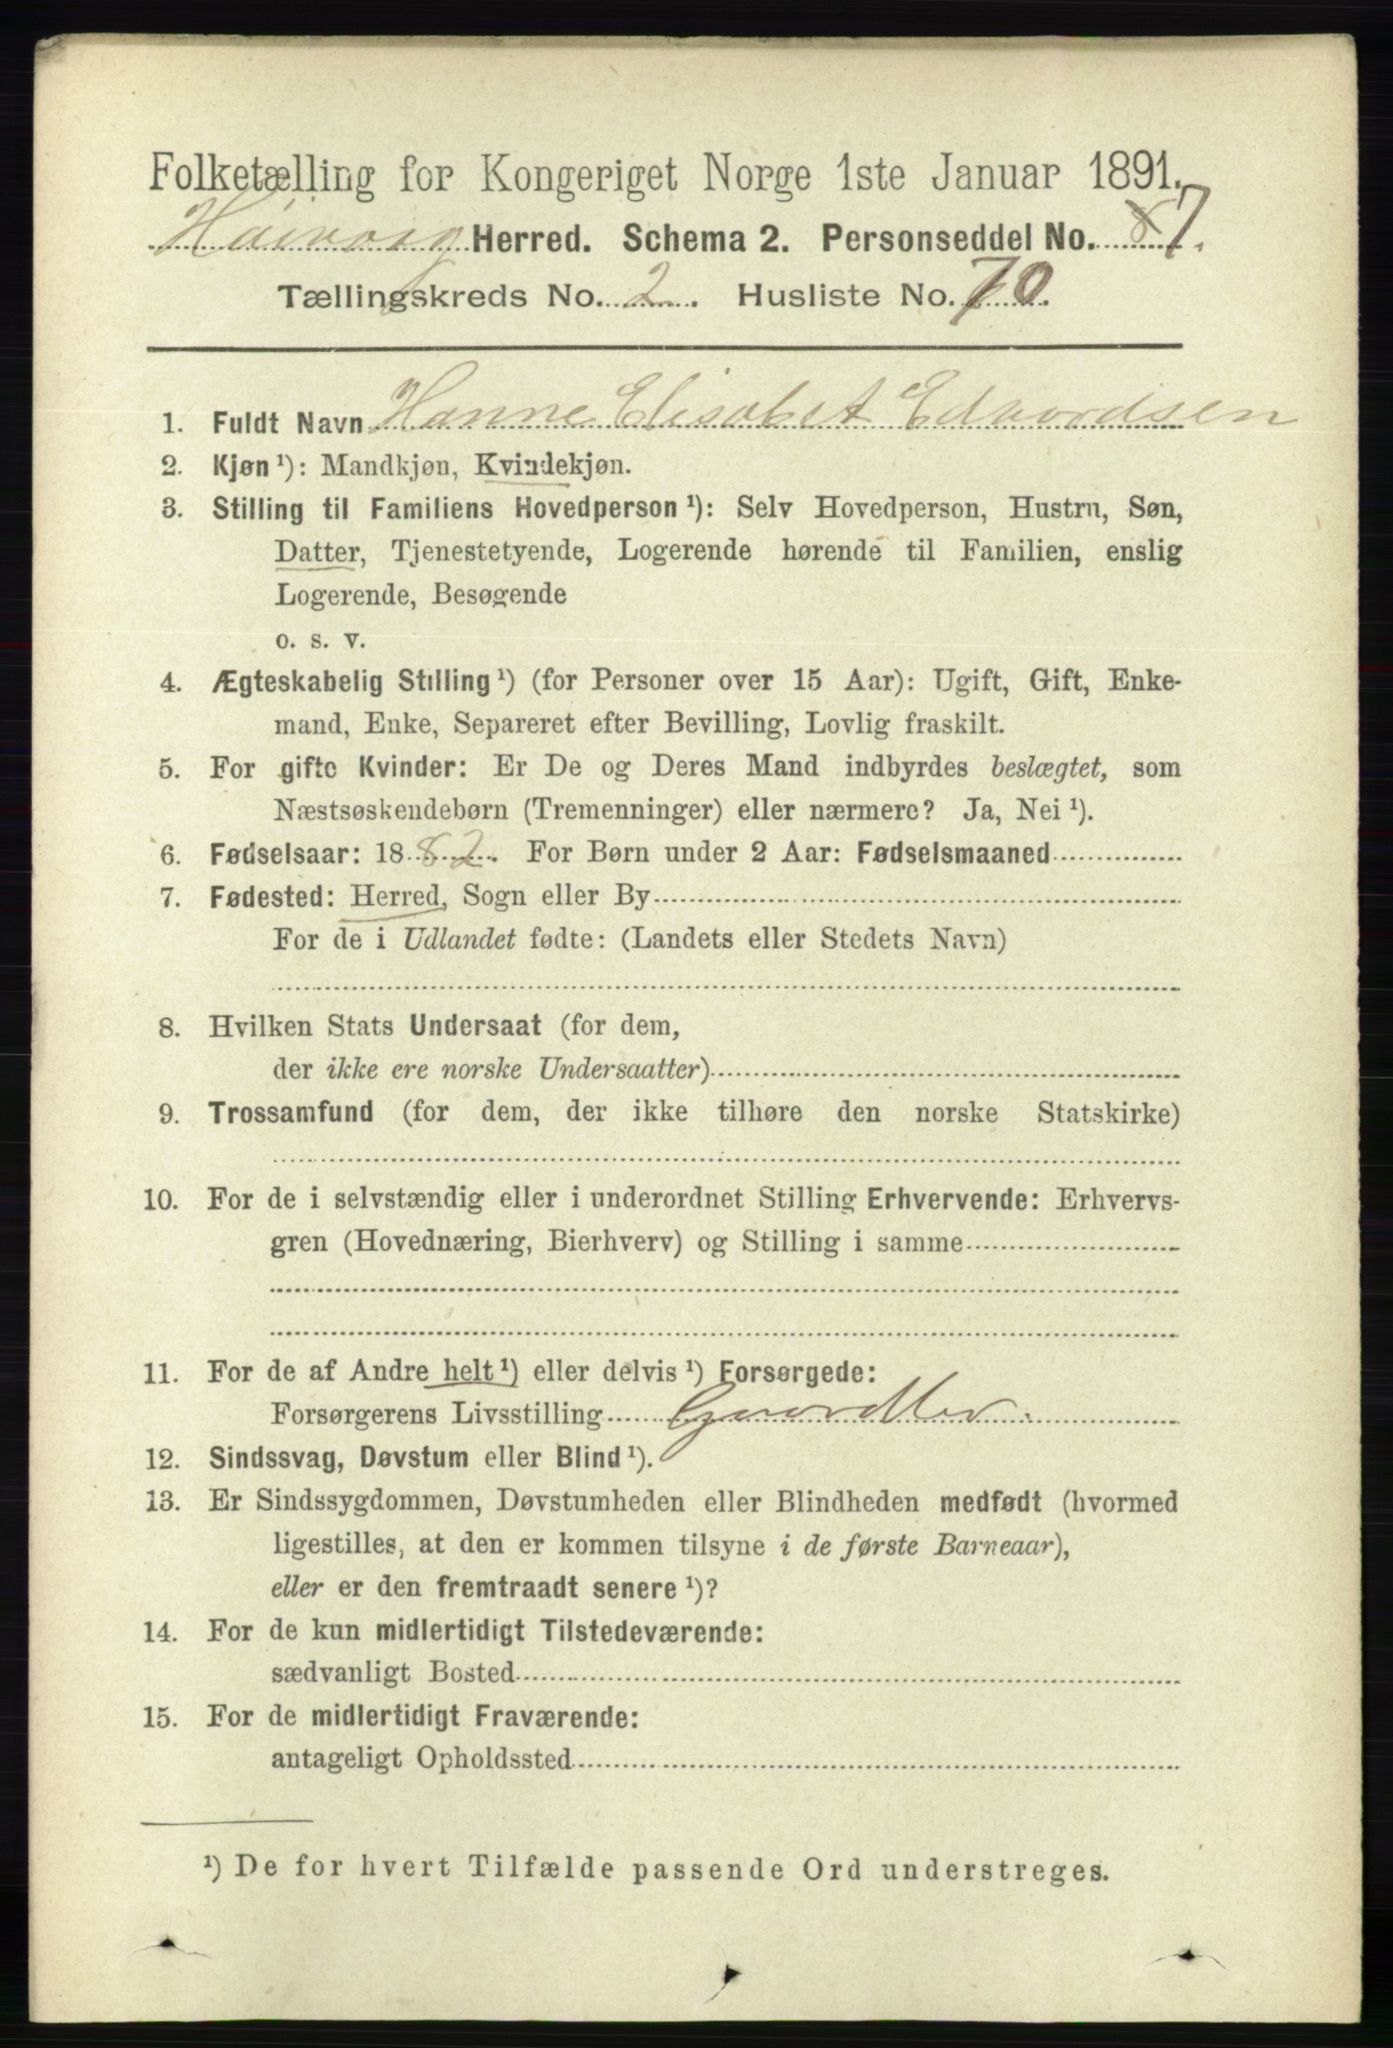 Folketælling for Kongeriget Norge 1ste Januar 1891.
Høivaag Herred. Schema 2. Personseddel No. 7.
Tællingskreds No. 2. Husliste No. 70.
1. Fuldt Navn Hanne Elisabet Edvardsen
2. Kjøn ¹): Mandkjøn, Kvindekjøn.
3. Stilling til Familiens Hovedperson ¹): Selv Hovedperson, Hustru, Søn,
Datter, Tjenestetyende, Logerende hørende til Familien, enslig
Logerende, Besøgende
o. s. v.
4. Ægteskabelig Stilling ¹) (for Personer over 15 Aar): Ugift, Gift, Enke-
mand, Enke, Separeret efter Bevilling, Lovlig fraskilt.
5. For gifte Kvinder: Er De og Deres Mand indbyrdes beslægtet, som
Næstsøskendebørn (Tremenninger) eller nærmere? Ja, Nei ¹).
6. Fødselsaar: 1882. For Børn under 2 Aar: Fødselsmaaned
7. Fødested: Herred, Sogn eller By
For de i Udlandet fødte: (Landets eller Stedets Navn)
8. Hvilken Stats Undersaat (for dem,
der ikke ere norske Undersaatter)
9. Trossamfund (for dem, der ikke tilhøre den norske Statskirke)
10. For de i selvstændig eller i underordnet Stilling Erhvervende: Erhvervs-
gren (Hovednæring, Bierhverv) og Stilling i samme
11. For de af Andre helt ¹) eller delvis ¹) Forsørgede:
Forsørgerens Livsstilling
12. Sindssvag, Døvstum eller Blind ¹).
13. Er Sindssygdommen, Døvstumheden eller Blindheden medfødt (hvormed
ligestilles, at den er kommen tilsyne i de første Barneaar),
eller er den fremtraadt senere ¹)?
14. For de kun midlertidigt Tilstedeværende:
sædvanligt Bosted
15. For de midlertidigt Fraværende:
antageligt Opholdssted
¹) De for hvert Tilfælde passende Ord understreges.